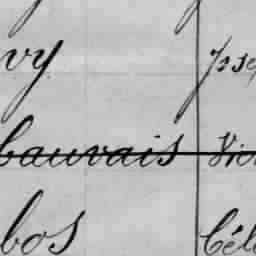 vy Jose
bauvais Vic
bos Cél